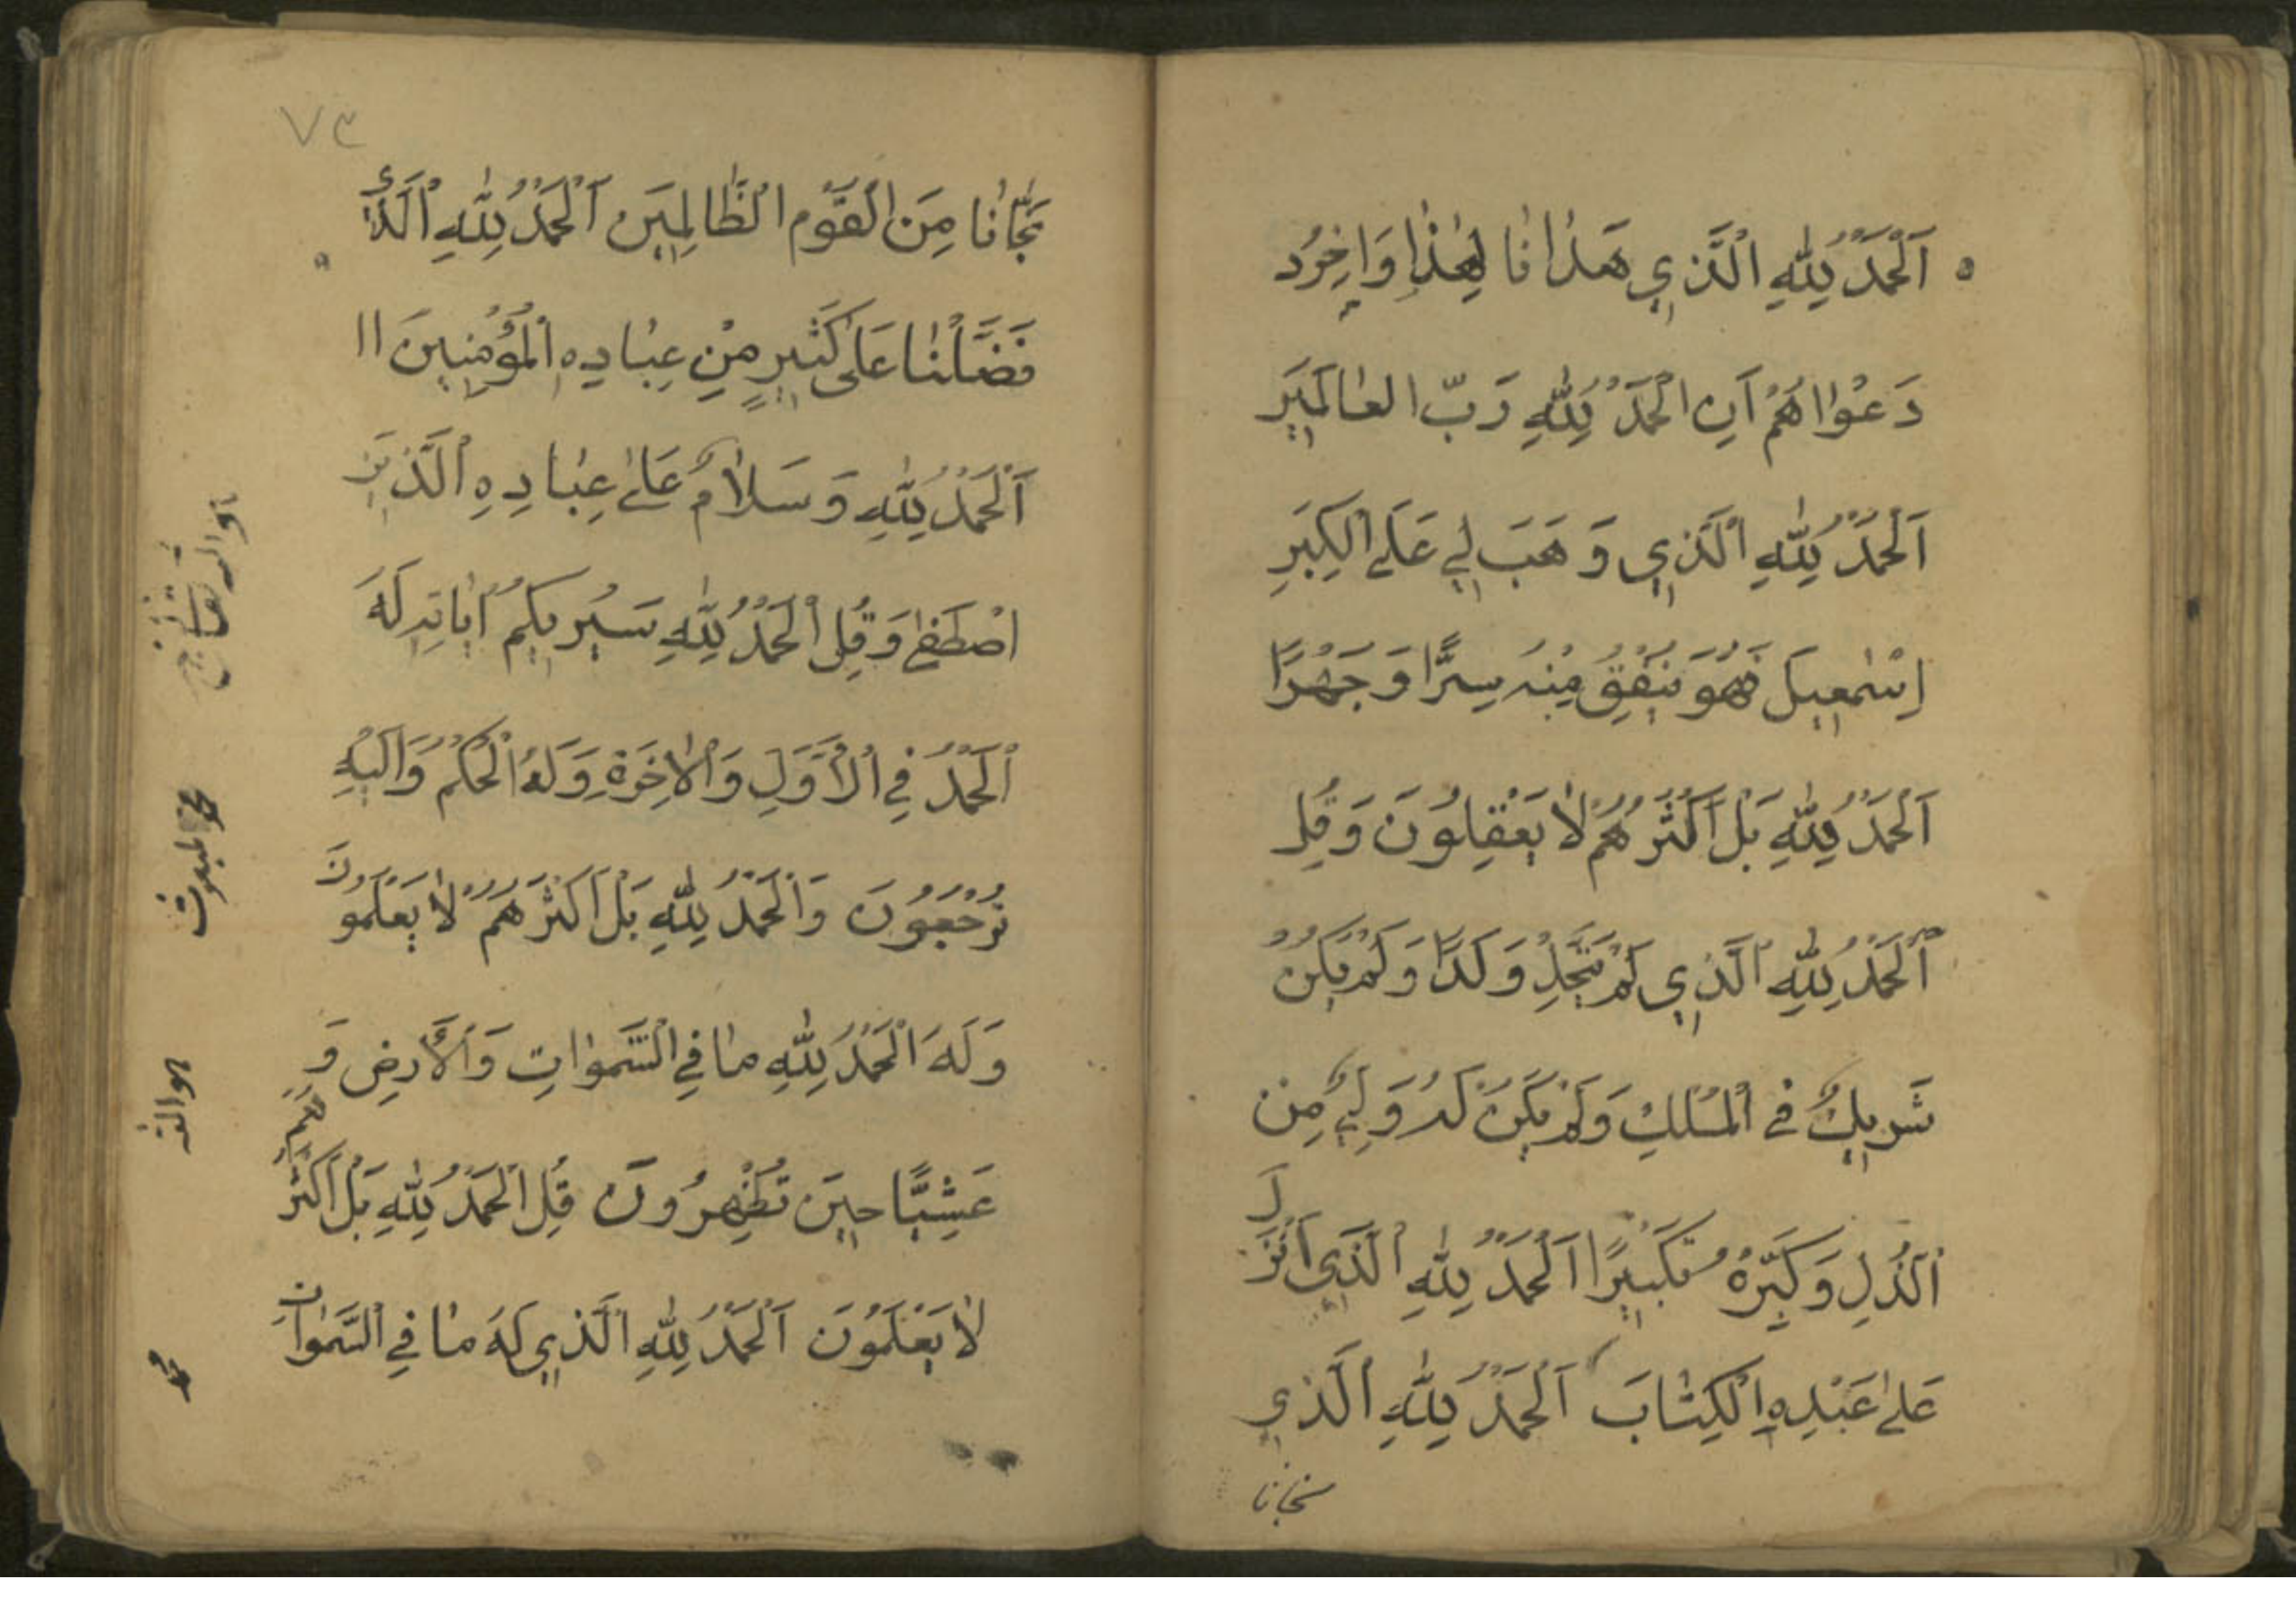 اَلْحَمْدُ لِلّٰهِ الَّذِي هَدٰانٰا لِهٰذٰا وَاٰخِرُ د
دَعْوٰاهُمْ اَنِ الْحَمْدُ لِلّٰهِ رَبِّ الْعٰالَمِينَ
اَلْحَمْدُ لِلّٰهِ الَّذِي وَهَبَ لِي عَلَى الْكِبَرِ
اِسْمٰعِيلَ فَهُوَ يُنْفِقُ مِنْهُ سِرًّا وَجَهْرًا
اَلْحَمْدُ لِلّٰهِ بَلْ اَكْثَرُهُمْ لٰا يَعْقِلُونَ وَقُلِ
اَلْحَمْدُ لِلّٰهِ الَّذِي لَمْ يَتَّخِذْ وَلَدًا وَلَمْ يَكُنْ
شَرِيكٌ فِي الْمُلْكِ وَلَمْ يَكُنْ لَهُ وَلِيٌّ مِنَ
الذُّلِ وَكَبِّرْهُ تَكْبِيرًا اَلْحَمْدُ لِلّٰهِ الَّذِي اَنْزَلَ
عَلىٰ عَبْدِهِ الْكِتٰابَ اَلْحَمْدُ لِلّٰهِ الَّذِي
نجانا
٧٣
نَجّٰانٰا مِنَ الْقَوْمِ الظّٰالِمِينَ اَلْحَمْدُ لِلّٰهِ الَّذِي
فَضَّلَنٰا عَلىٰ كَثِيرٍ مِنْ عِبٰادِهِ الْمُؤْمِنِينَ اا
اَلْحَمْدُ لِلّٰهِ وَسَلٰامٌ عَلىٰ عِبٰادِهِ الَّذِينَ
اصْطَفىٰ وَقُلِ الْحَمْدُ لِلّٰهِ سَيُرِيكُمْ اٰيٰاتِهِ لَهُ
الْحَمْدُ فِي الْاَوَّلِ وَالْاٰخِرَةِ وَلَهُ الْحُكْمُ وَاِلَيْهِ
تُرْجَعُونَ وَالْحَمْدُ لِلّٰهِ بَلْ اَكْثَرُهُمْ لٰا يَعْلَمُونَ
وَلَهُ الْحَمْدُ لِلّٰهِ مٰا فِي السَّمٰوٰاتِ وَالْاَرْضِ وَ
عَشِيًّا حِينَ تُظْهِرُونَ قُلِ الْحَمْدُ لِلّٰهِ بَلْ اَكْثَرُهُمْ
لٰا يَعْلَمُونَ اَلْحَمْدُ لِلّٰهِ الَّذِي لَهُ مٰا فِي السَّمٰوٰاتِ
هوالله